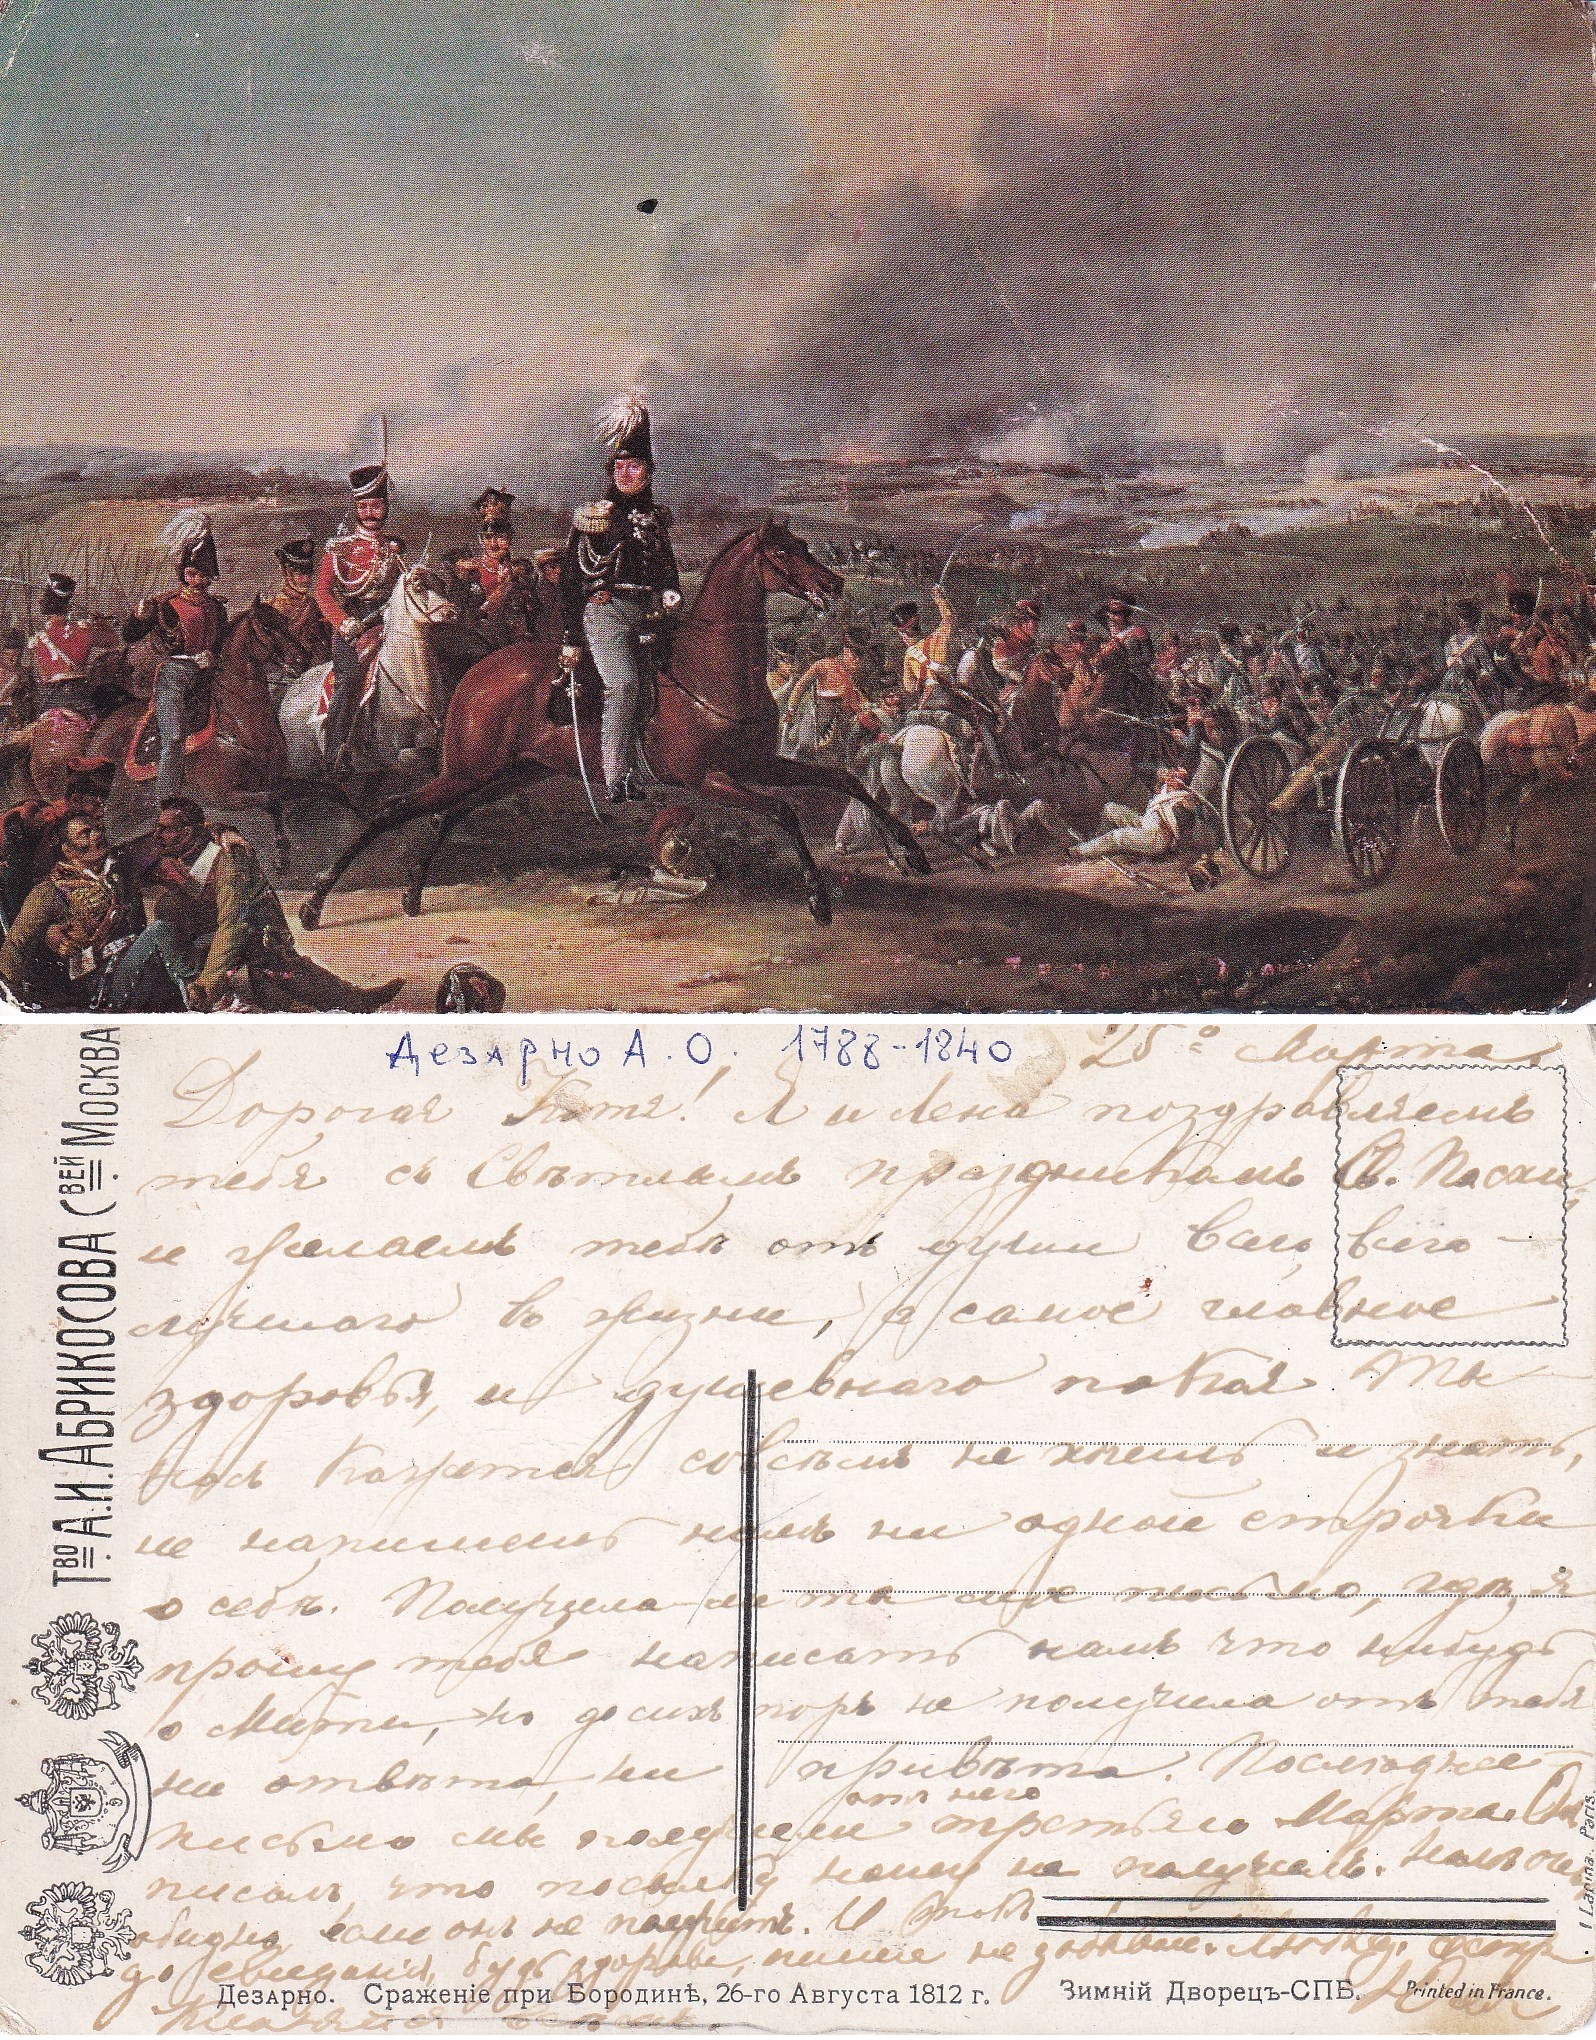 Дезарно А. О. 1788-1840
25º Марта
Дорогая Катя! Я и Лена поздравляемъ
тебя съ Свѣтлымъ праздникомъ Св. Пасхи,
и желаемъ тебѣ отъ души всего, всего
лучшаго въ жизни, а самое главное
здоровья, и душевнаго покоя. Ты
насъ кажется совсѣмъ не хочешь и знать,
не напишешь намъ ни одной строчки
о себѣ. Получила-ли ты мое письмо, гдѣ я
прошу тебя написать намъ что нибудь
о Мити, но до сихъ поръ не получила отъ тебя
ни отвѣта, ни привѣта. Послѣднее
отъ него
письмо мы получили третьяго Марта. Онъ
писалъ что посылку нашу не получилъ. Намъ
обидно, если онъ не получитъ. И такъ
до свиданія, будь здорова, пиши не забывай.
Кланяйся
Тво А.И.АБРИКОСОВА Свей МОСКВА
Дезарно. Сраженіе при Бородинѣ, 26-го Августа 1812 г.
Зимній Дворецъ-СПБ.
Printed in France.
I. Lapina. Paris.